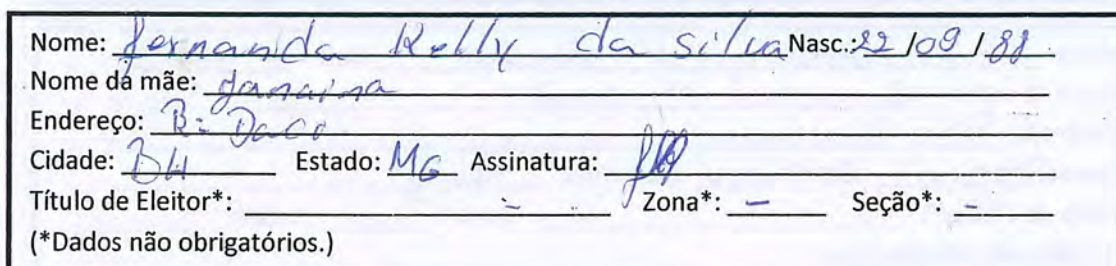 Nome: Fernanda Kelly da Silva Nasc.: 22 / 09 / 88
Nome da mãe: Janaina
Endereço: R:
Cidade: BH Estado: MG Assinatura:
Título de Eleitor*: - Zona*: - Seção*: -
(*Dados não obrigatórios.)